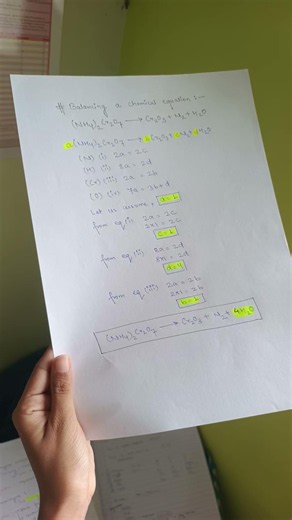 # Balancing a chemical equation :—
(NH4)2Cr2O7 → Cr2O3 + N2 + H2O
a(NH4)2Cr2O7 → bCr2O3 + cN2 + dH2O
(N) (i) 2a = 2c
(H) (ii) 8a = 2d
(Cr) (iii) 2a = 2b
(O) (iv) 7a = 3b + d
Let us assume, a = 1
from eq (i) 2a = 2c
2×1 = 2c
c = 1
from eq (ii) 8a = 2d
8×1 = 2d
d = 4
from eq (iii) 2a = 2b
2×1 = 2b
b = 1
(NH4)2Cr2O7 → Cr2O3 + N2 + 4H2O